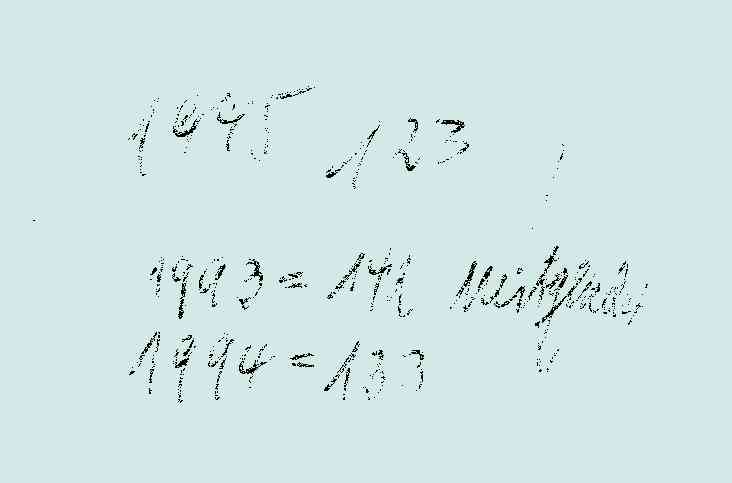 1995 123
1993 = 141 Mitglieder
1994 = 133